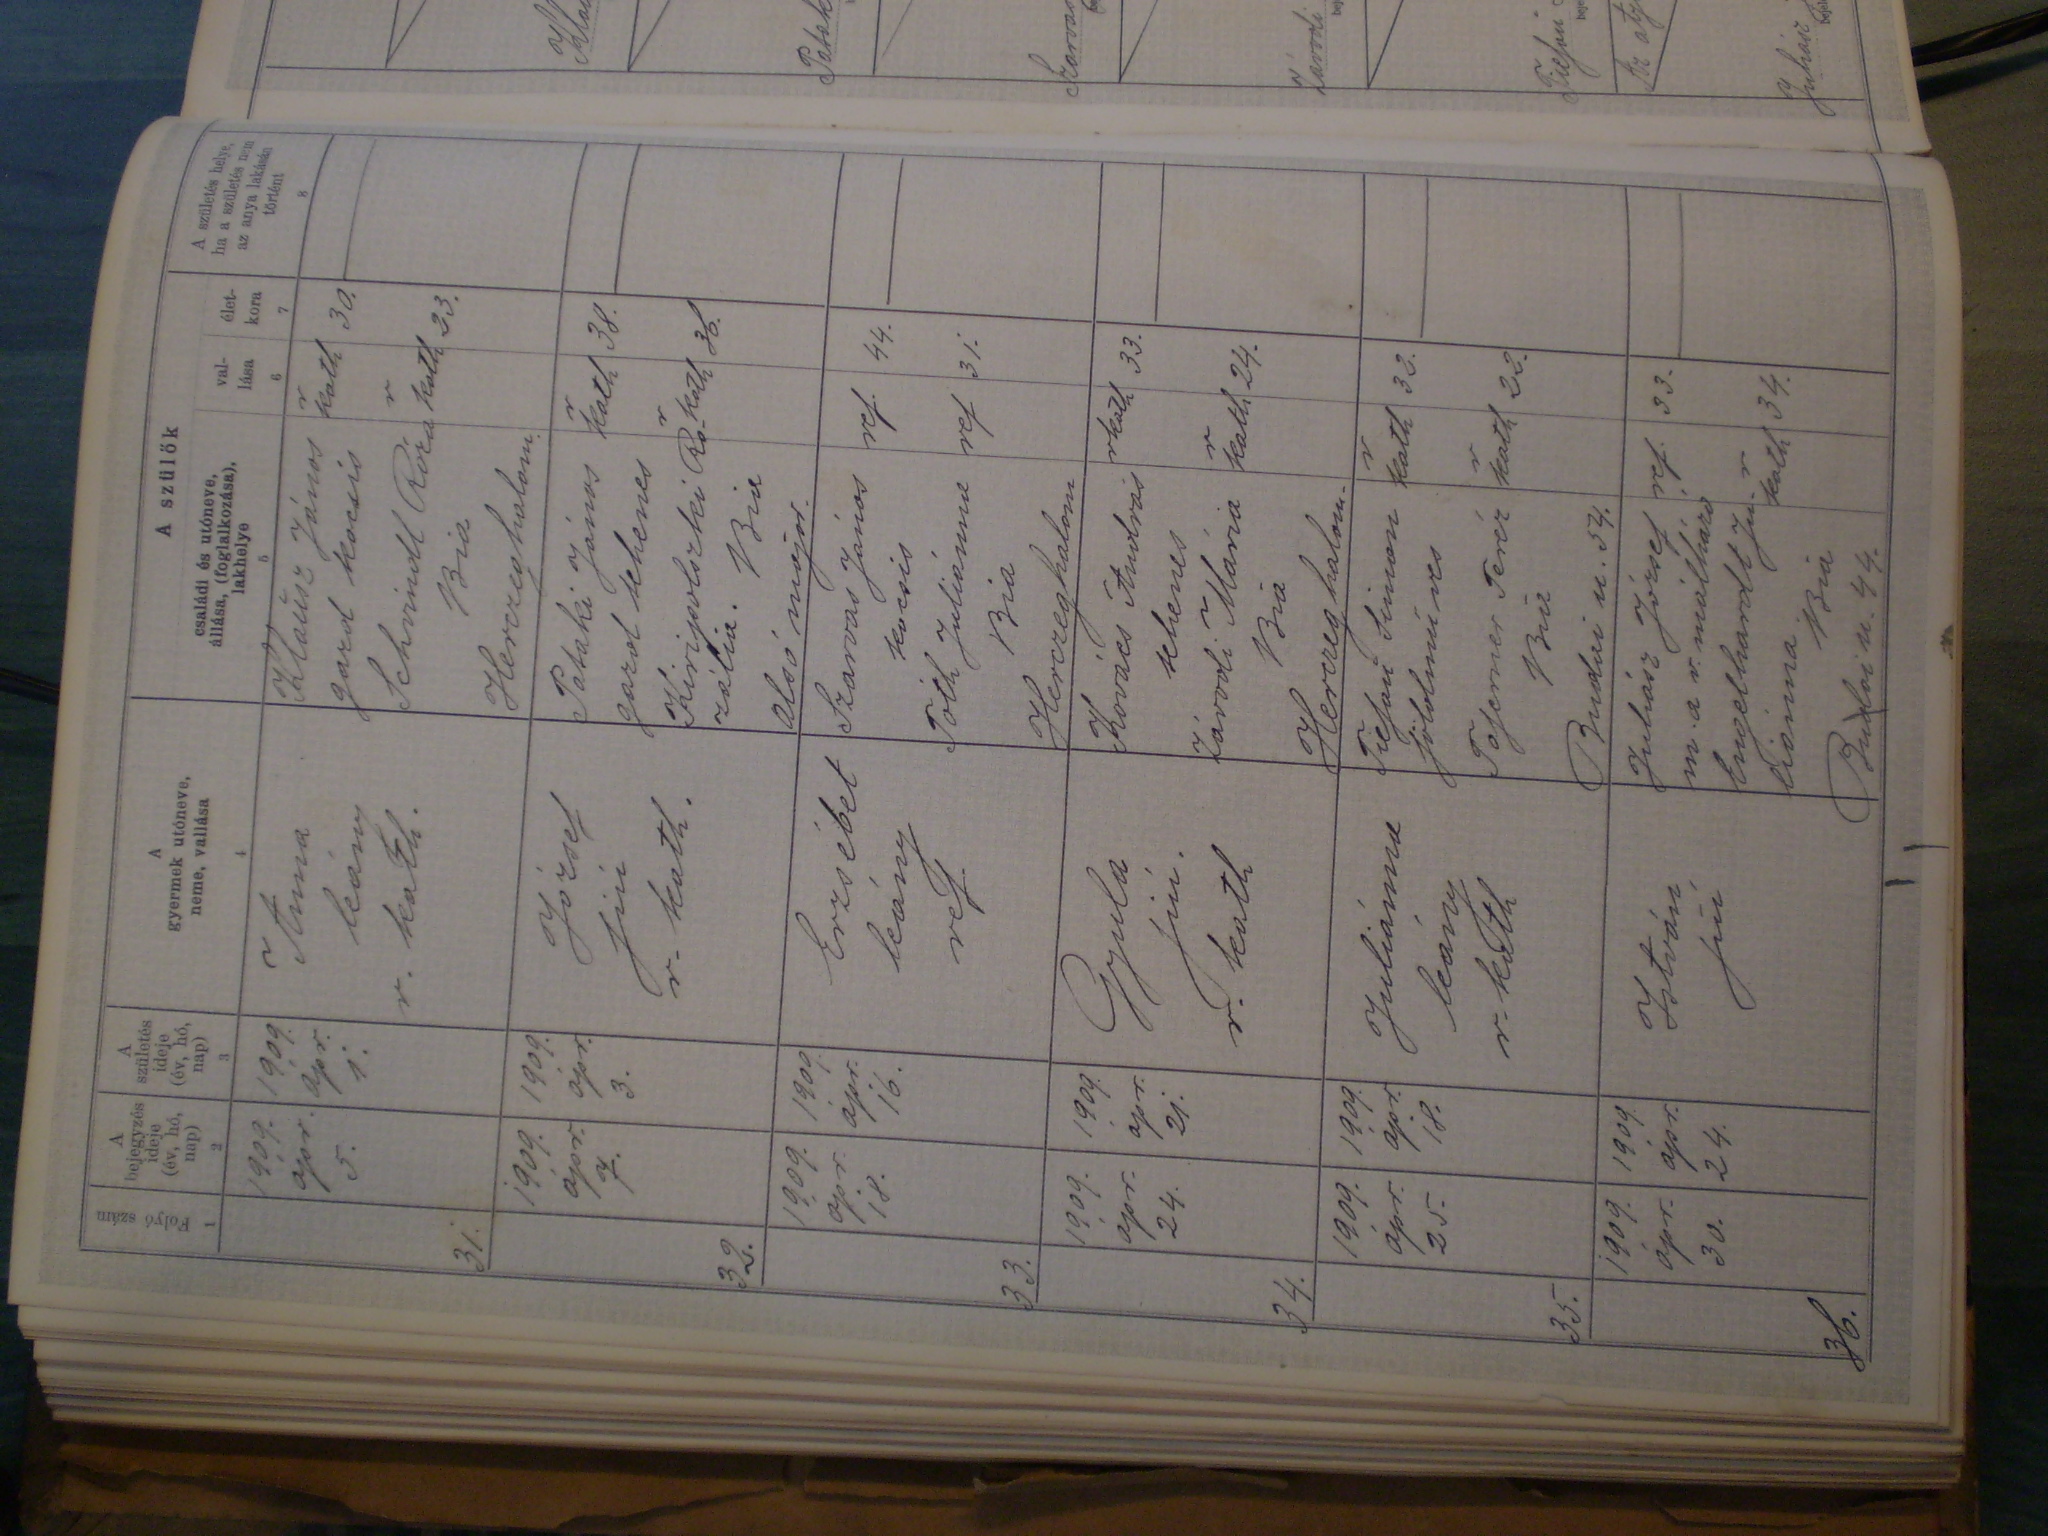 A szülők
Folyó szám
A bejegyzés ideje (év, hó, nap)
A születés ideje (év, hó, nap)
A gyermek utóneve, neme, vallása
családi és utóneve, állása, (foglalkozása), lakhelye
vallása
életkora
A születés helye, ha a születés nem az anya lakásán történt
1
2
3
4
5
6
7
8
31.
1909.
ápr.
5.
1909.
ápr.
1.
Anna
leány
r. kath.
Klausz János
gazd kocsis
Schvindl Róza
Bia
Herczeghalom.
r kath
30.
r kath
23.
32.
1909.
ápr.
7.
1909.
ápr.
3.
József
fiú
r. kath.
Pataki János
gazd tehenes
Ro-
zália.
Bia
Alsó major.
r kath
38.
r kath
36.
33.
1909.
ápr.
18.
1909.
ápr.
16.
Erzsébet
leány
ref.
Szarvas János
kocsis
Tóth Juliánna
Bia
Herczeghalom
ref.
44.
ref
31.
34.
1909.
ápr.
24.
1909.
ápr.
21.
Gyula
fiú.
r. kath
Kovács András
tehenes
Závodi Mária
Bia
Herczeghalom.
rkath
33.
r kath
24.
35.
1909.
ápr.
25.
1909.
ápr.
18.
Juliánna
leány
r. kath
Simon
földmíves
Teréz
Bia
Budai u. 54.
r kath
32.
r kath
22.
36.
1909.
ápr.
30.
1909.
ápr.
24.
István
fiú
Juhász József
m.a.v. málházó
Engelhardt Ju
liánna
Bia
Budai u. 44.
ref.
33.
r kath
34.
Szarvas
Závodi
Juhász